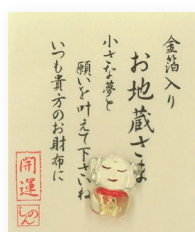 金箔入り
お地蔵さま
小さな夢と
願いを叶えて下さいね
いつも貴方のお財布に
開運